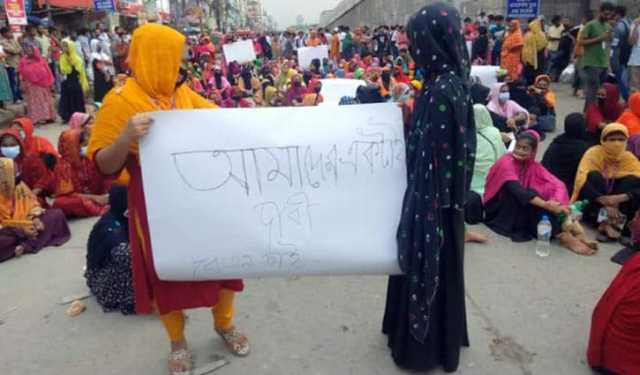 আমাদের একটাই
দাবী
বেতন চাই